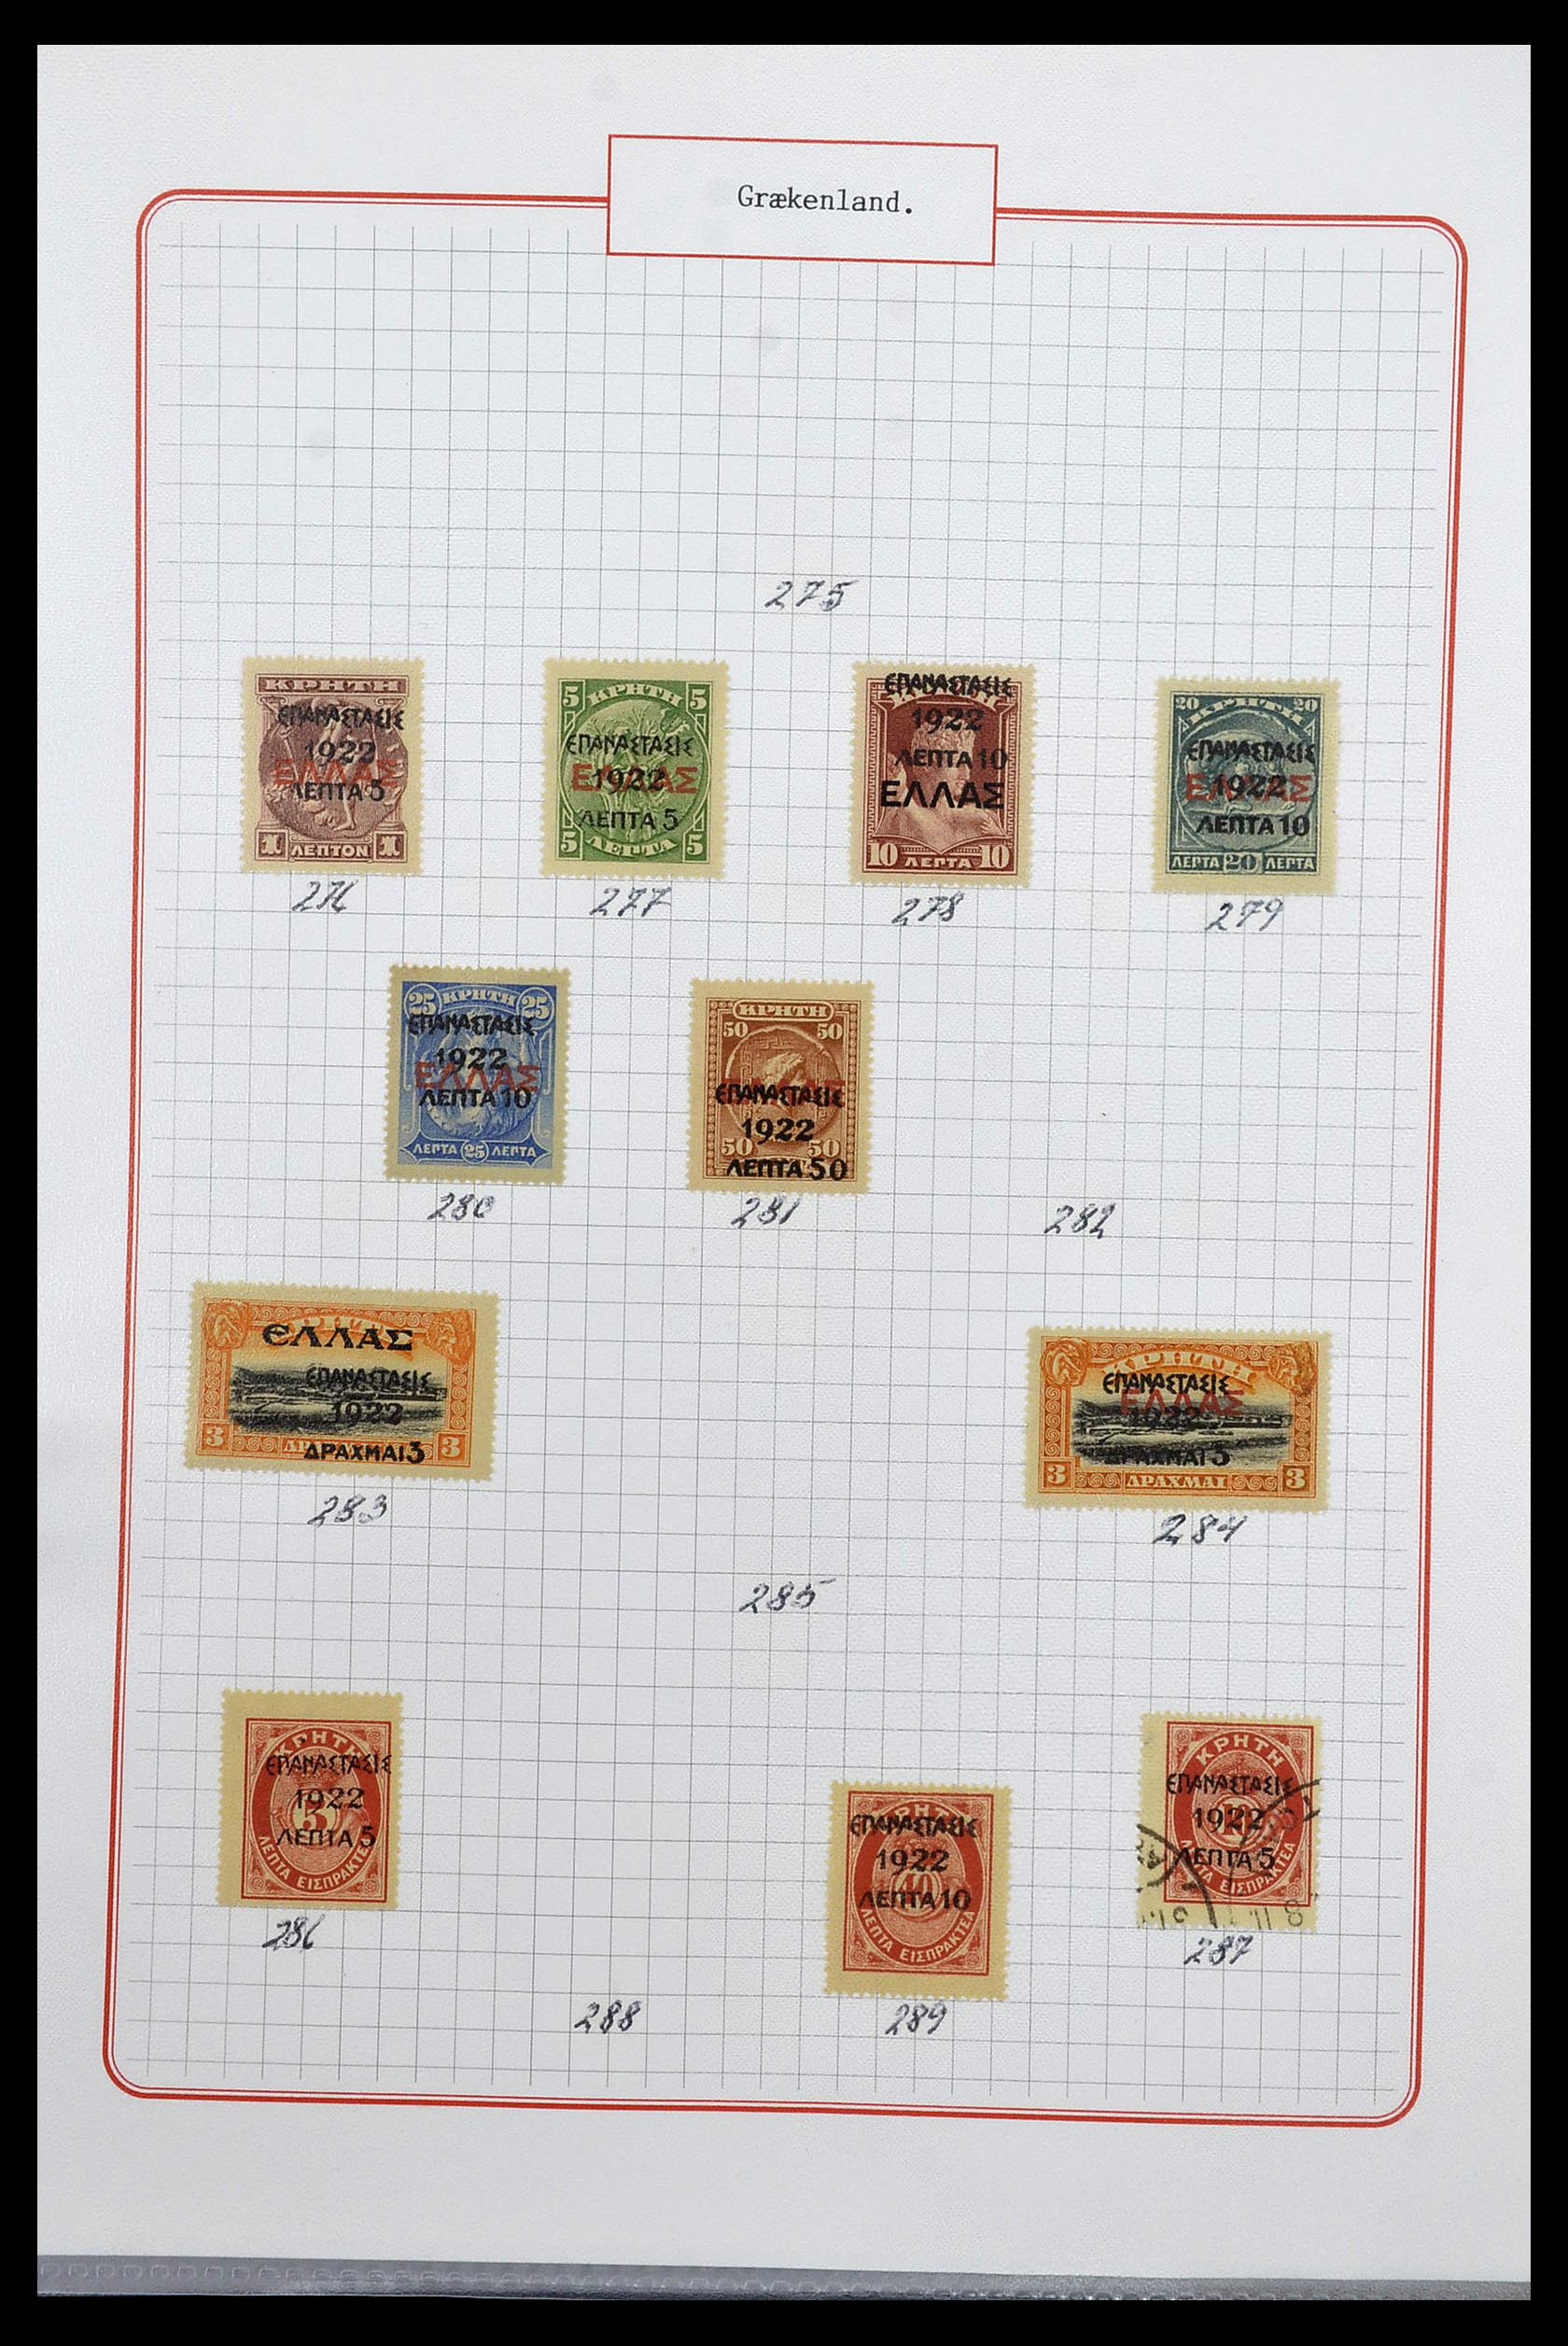 Grækenland.
275
ΚΡΗΤΗ
ΕΠΑΝΑΣΤΑΣΙΣ
1922
ΕΛΛΑΣ
ΛΕΠΤΑ 5
1 ΛΕΠΤΟΝ 1
276
5 ΚΡΗΤΗ 5
ΕΠΑΝΑΣΤΑΣΙΣ
ΕΛΛΑΣ
1922
ΛΕΠΤΑ 5
5 ΛΕΠΤΑ 5
277
ΕΠΑΝΑΣΤΑΣΙΣ
1922
ΛΕΠΤΑ 10
ΕΛΛΑΣ
10 ΛΕΠΤΑ 10
278
20 ΚΡΗΤΗ 20
ΕΠΑΝΑΣΤΑΣΙΣ
ΕΛΛΑΣ
1922
ΛΕΠΤΑ 10
ΛΕΠΤΑ 20 ΛΕΠΤΑ
279
25 ΚΡΗΤΗ 25
ΕΠΑΝΑΣΤΑΣΙΣ
1922
ΕΛΛΑΣ
ΛΕΠΤΑ 10
ΛΕΠΤΑ 25 ΛΕΠΤΑ
280
ΚΡΗΤΗ
50 50
ΕΠΑΝΑΣΤΑΣΙΣ
1922
50 50
ΛΕΠΤΑ 50
281
282
ΚΡΗΤΗ
ΕΛΛΑΣ
ΕΠΑΝΑΣΤΑΣΙΣ
1922
3 3
ΔΡΑΧΜΑΙ 3
283
ΚΡΗΤΗ
ΕΠΑΝΑΣΤΑΣΙΣ
ΕΛΛΑΣ
1922
ΔΡΑΧΜΑΙ 3
3 ΔΡΑΧΜΑΙ 3
284
285
ΚΡΗΤΗ
ΕΠΑΝΑΣΤΑΣΙΣ
1922
5
ΛΕΠΤΑ 5
ΛΕΠΤΑ ΕΙΣΠΡΑΚΤΕΑ
286
ΚΡΗΤΗ
ΕΠΑΝΑΣΤΑΣΙΣ
1922
40
ΛΕΠΤΑ 10
ΛΕΠΤΑ ΕΙΣΠΡΑΚΤΕΑ
289
ΚΡΗΤΗ
ΕΠΑΝΑΣΤΑΣΙΣ
1922
ΛΕΠΤΑ 5
ΛΕΠΤΑ ΕΙΣΠΡΑΚΤΕΑ
287
288